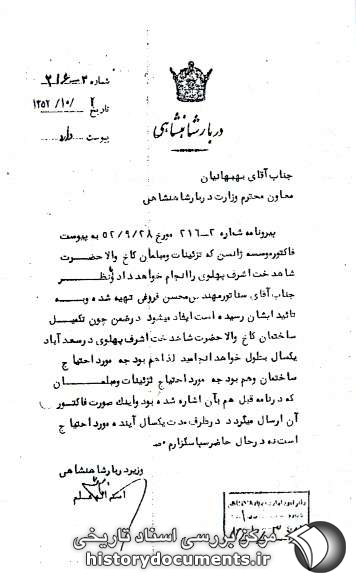 شماره ۳-۲۱۶
تاریخ ۲ /۱۰/ ۱۳۵۲
پیوست دارد
دربار شاهنشاهی
جناب آقای بهبهانیان
معاون محترم وزارت دربار شاهنشاهی
پیرو نامه شماره ۲-۲۱۶ مورخ ۵۲/۹/۲۸ به پیوست
فاکتور موسسه ژانسن که تزئینات و مبلمان کاخ والاحضرت
شاهدخت اشرف پهلوی را انجام خواهد داد و نظر
جناب آقای سناتور مهندس محسن فروغی تهیه شده و به
تائید ایشان رسیده است ایفاد میشود در ضمن چون تکمیل
ساختمان کاخ والاحضرت شاهدخت اشرف پهلوی در سعد آباد
یکسال بطول خواهد انجامید لذا هم بودجه مورد احتیاج
ساختمان و هم بودجه مورد احتیاج تزئینات و مبلمان
که در نامه قبل هم بآن اشاره شده بود و اینک صورت فاکتور
آن ارسال میگردد در ظرف مدت یکسال آینده مورد احتیاج
است نه در حال حاضر سپاسگزارم
وزیر دربار شاهنشاهی
اسداله علم
مرکز بررسی اسناد تاریخی
historydocuments.ir